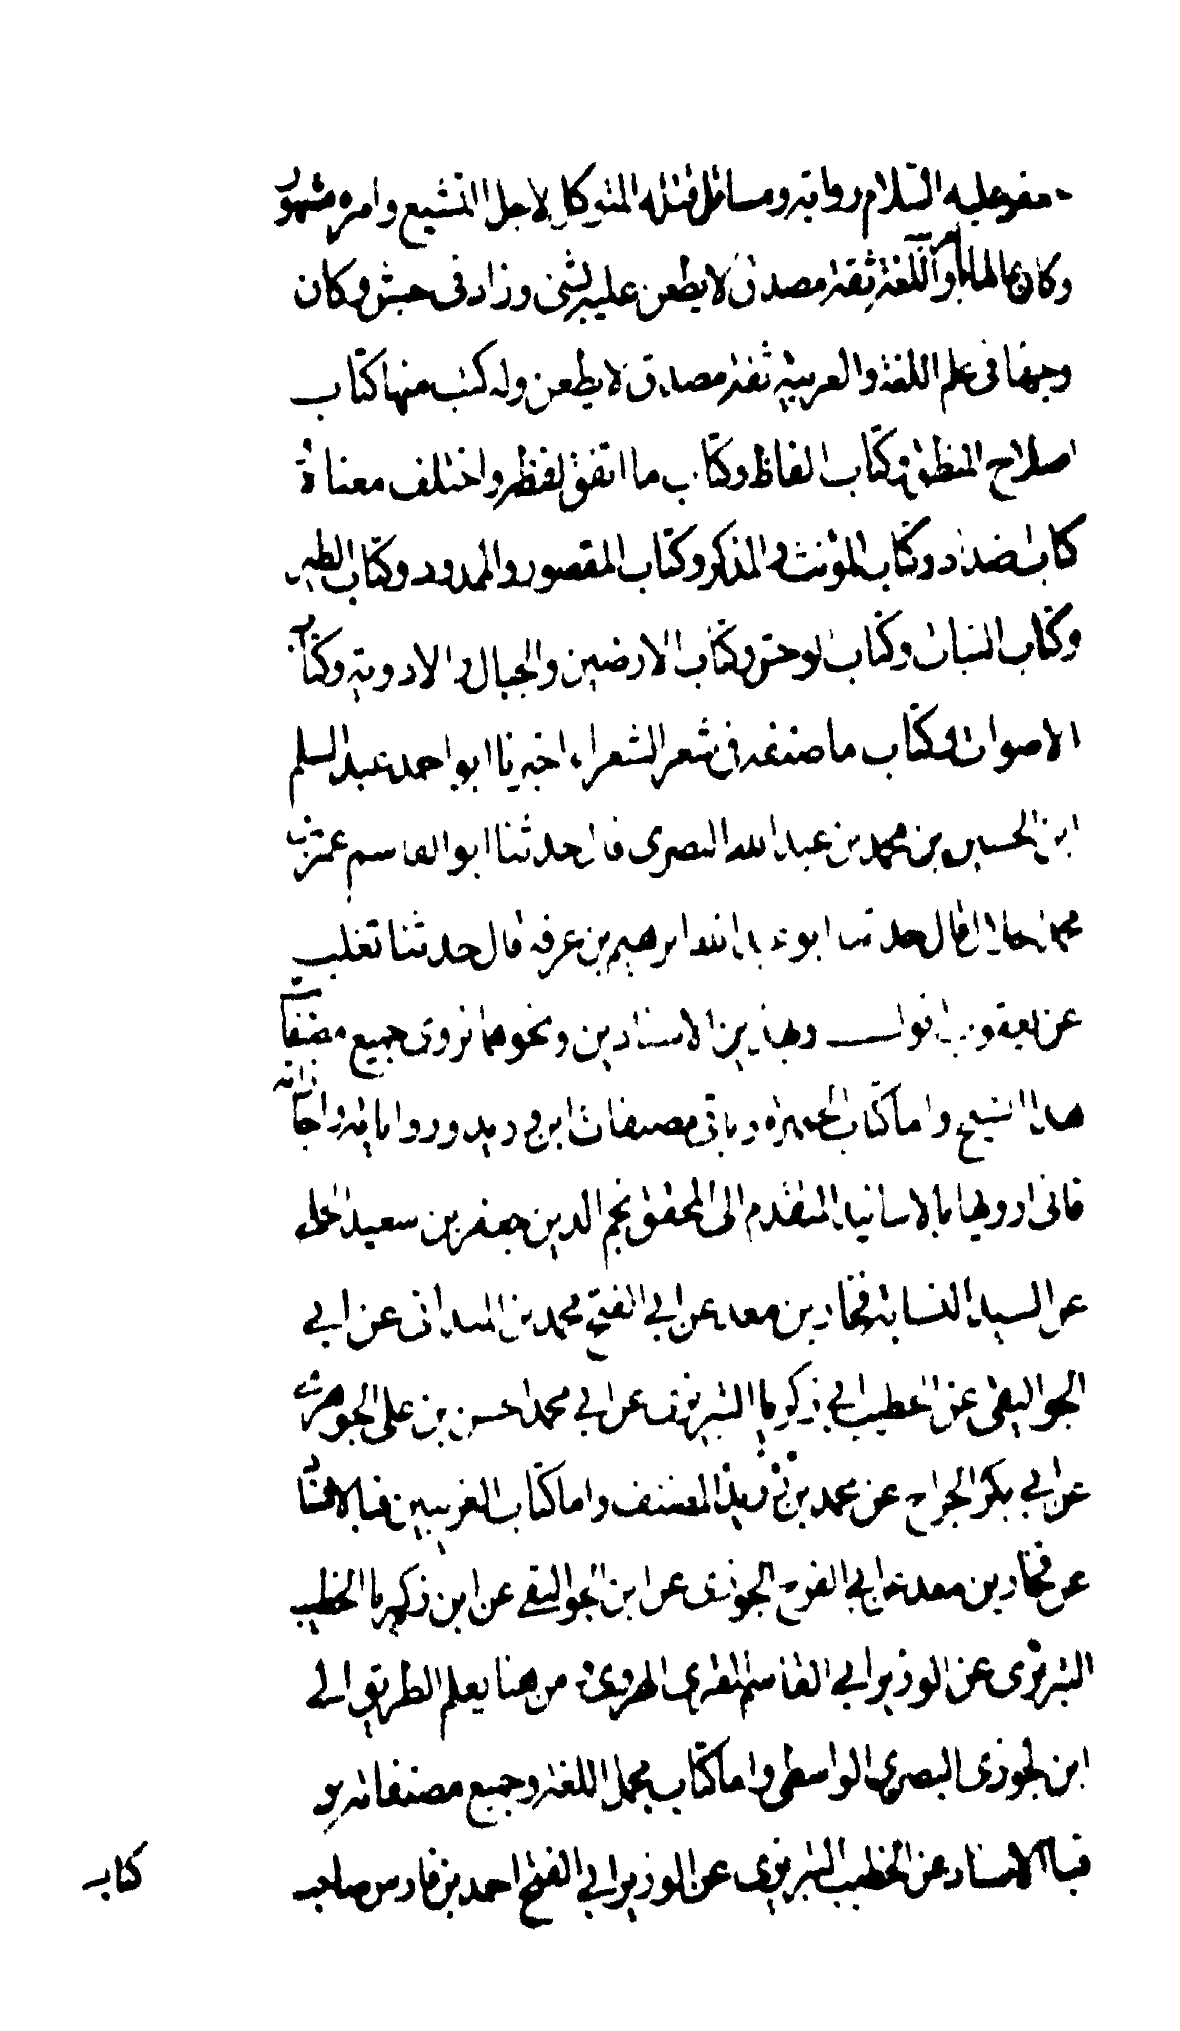 جعفر عليه السلام رواية ومسائل قتله المتوكل لاجل التشيع وامره مشهور
وكان عالما بالعربية واللغة ثقة مصدق لا يطعن عليه بشئ وزاد في جش وكان
وجها في علم اللغة والعربية ثقة مصدق لا يطعن وله كتب منها كتاب
اصلاح المنطق وكتاب الفاظ وكتاب ما اتفق لفظه واختلف معناه
كتاب اضداد وكتاب المؤنث والمذكر وكتاب المقصور والممدود وكتاب الطير
وكتاب النبات وكتاب لوحش وكتاب الارضين والجبال والادوية وكتاب
الاصوات وكتاب ما صنفه في شعر الشعراء اخبرنا ابو احمد عبد السلم
ابن الحسين بن محمد بن عبد الله البصرى قال حدثنا ابو القاسم عمر بن
محمد قال حدثنا ابو عبد الله ابرهيم بن عرفه قال حدثنا تغلب
عن يعقوب اقول وبهذين الاسنادين ونحوهما نروى جميع مصنفات
هذا الشيخ واما كتاب الجمهرة وباقى مصنفات ابن دريد ورواياته واجازاته
فانى ارويها بالاسانيد المتقدم الى المحقق نجم الدين جعفر بن سعيد الحلى
عن السيد النسابة فخار بن معد عن ابي الفتح محمد بن الميدانى عن ابي
الجواليقى عن الخطيب ابي زكريا التبريزى عن ابي محمد احسن بن على الجوهرى
عن ابي بكر الجراح عن محمد بن دريد المصنف واما كتاب الغريبين فبالاسناد
عن فخار بن معد عن ابي الفرج الجوزى عن ابن الجواليقى عن ابن زكريا الخطيب
التبريزى عن الوزير ابي القاسم المغربى الهروى من هنا يعلم الطريق الى
ابن لجوزى البصرى الواسطى واما كتاب مجمل اللغة وجميع مصنفاته
فبالاسناد عن الخطيب التبريزى عن الوزير ابي الفتح احمد بن فارس صاحب
كتاب